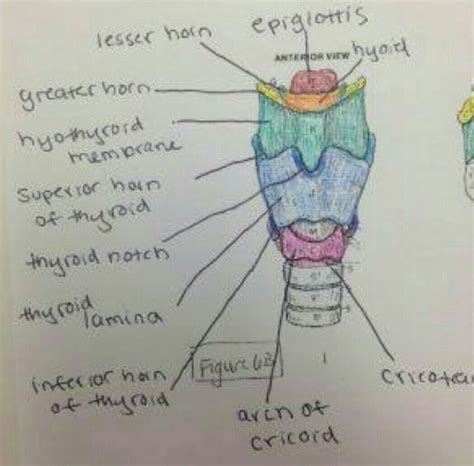 epiglottis
lesser horn
ANTERIOR VIEW
hyoid
greater horn
hyothyroid
membrane
superior horn
of thyroid
thyroid notch
thyroid
lamina
inferior horn
of thyroid
Figure 6B
1
arch of
cricoid